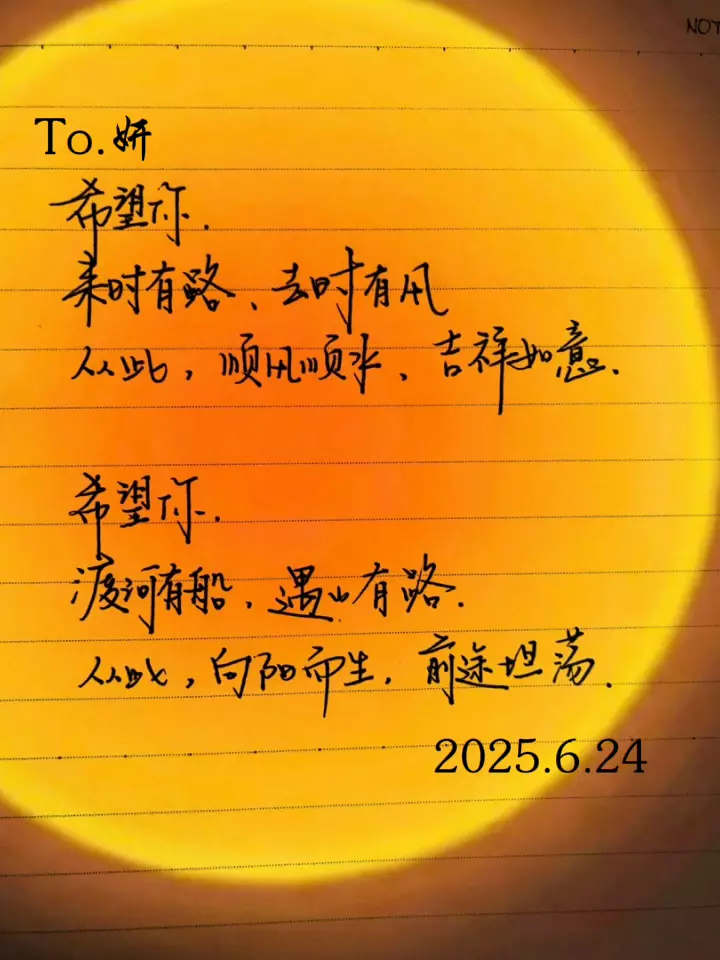 NOT
To.妍
希望你.
来时有路、去时有风
从此,顺风顺水、吉祥如意.
希望你.
渡河有船、遇山有路.
从此,向阳而生,前途坦荡.
2025.6.24